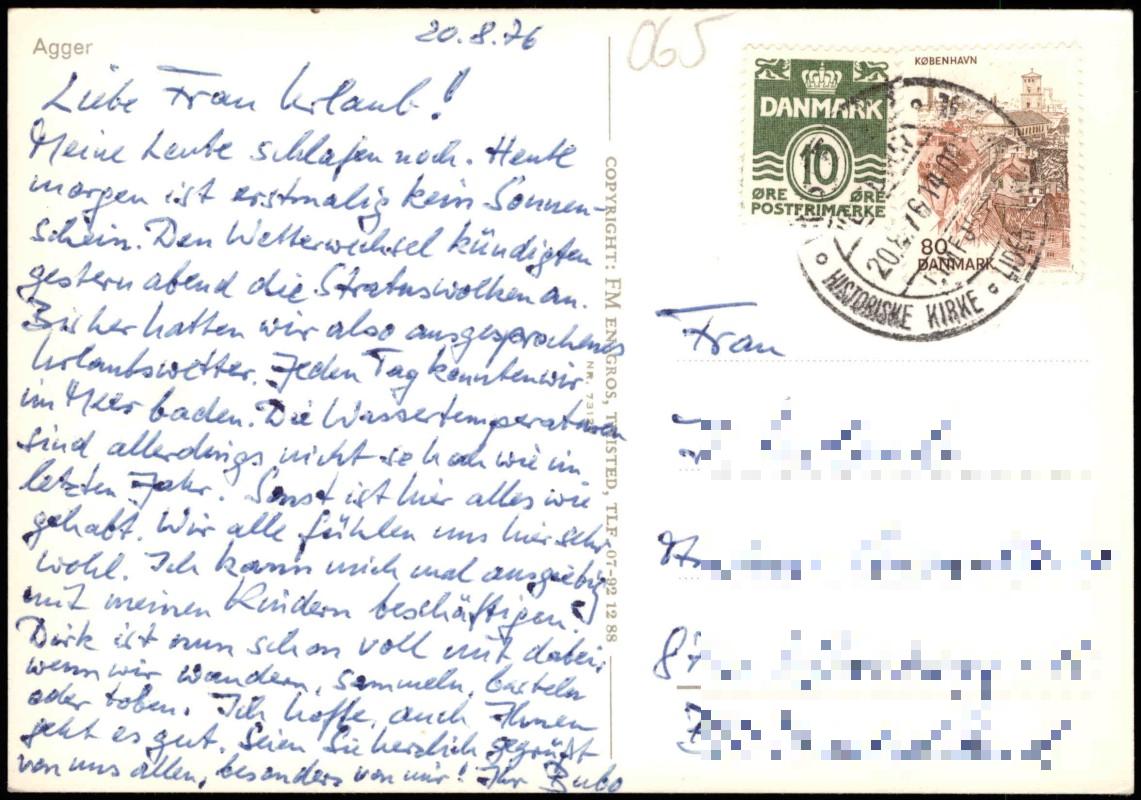 Agger
20.8.76
Liebe Frau Urlaub!
Meine Leute schlafen noch. Heute
morgen ist erstmalig kein Sonnen-
schein. Den Wetterwechsel kündigten
gestern abend die Stratuswolken an.
Bisher hatten wir also ausgesprochenes
Urlaubswetter. Jeden Tag konnten wir
im Meer baden. Die Wassertemperaturen
sind allerdings nicht so hoch wie im
letzten Jahr. Sonst ist hier alles wie
gehabt. Wir alle fühlen uns hier sehr
wohl. Ich kann mich mal ausgiebig
mit meinen Kindern beschäftigen.
Dirk ist nun schon voll mit dabei,
wenn wir wandern, sammeln, basteln
oder toben. Ich hoffe, auch Ihnen
geht es gut. Seien Sie herzlich gegrüßt
von uns allen, besonders von mir! Ihr Bubo
COPYRIGHT: FM ENGROS, THISTED, TLF. 07-92 12 88
065
DANMARK
10
ØRE ØRE
POSTFRIMÆRKE
KØBENHAVN
80
DANMARK
HISTORISKE KIRKE
Frau